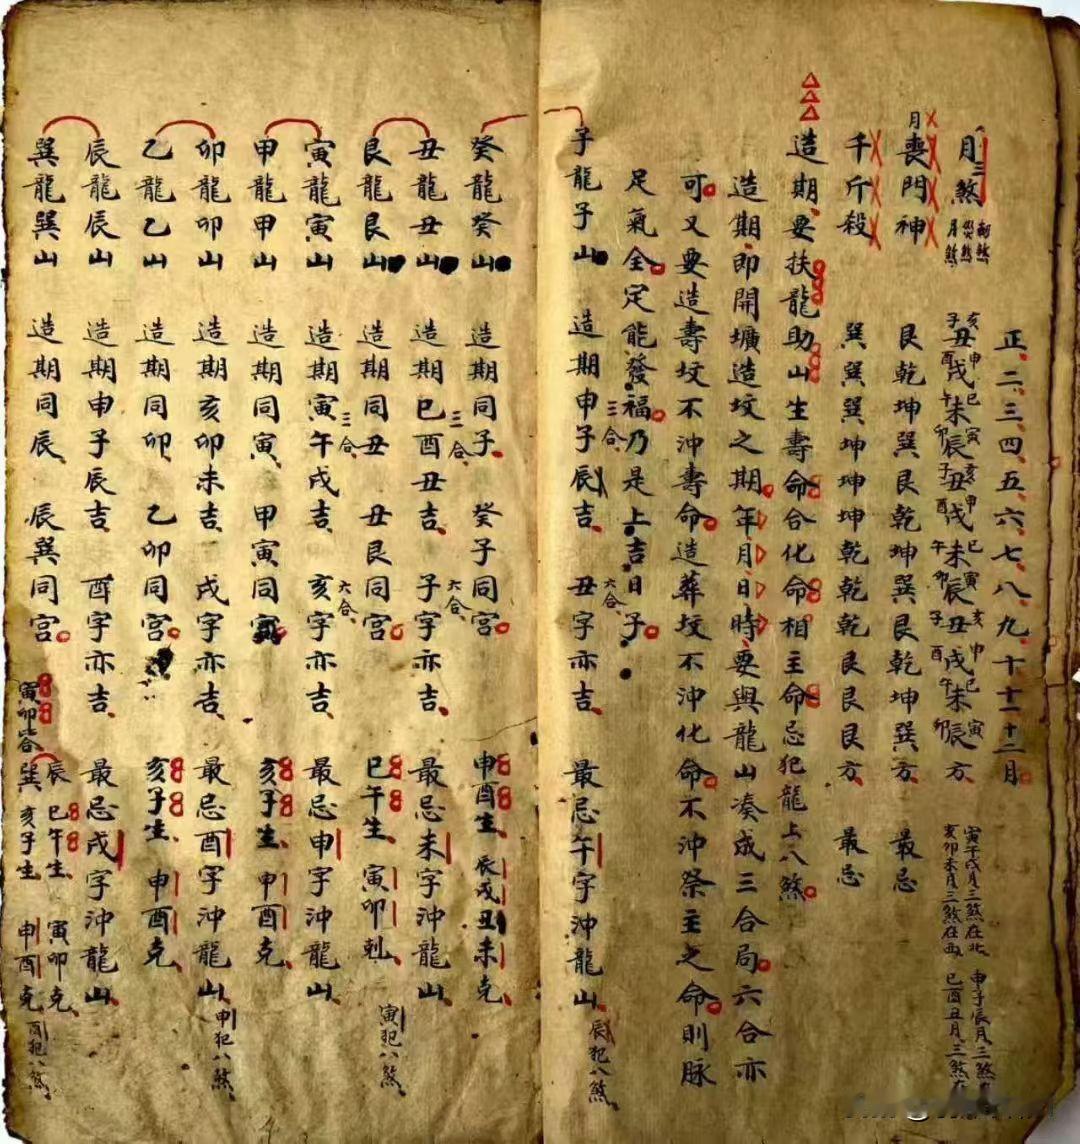 正、二、三、四、五、六、七、八、九、十、十一十二月
月三煞 劫煞 災煞 月煞 丑戌未辰丑戌未辰丑戌未辰方、
亥申巳寅亥申巳寅亥申巳寅
子酉午卯子酉午卯子酉午卯
寅午戌月三煞在北、申子辰月三煞
亥卯未月三煞在西、巳酉丑月三煞
月喪門神 艮乾坤巽艮乾坤巽艮乾坤巽方、最忌
千斤殺 巽巽巽坤坤坤乾乾乾艮艮艮方、最忌
造期、要扶龍助山生壽命合化命相主命忌犯龍上八煞。
造期、即開壙造墳之期。年月日時、要與龍山湊成三合局。六合亦
可。又要造壽墳不沖壽命。造葬墳不沖化命。不沖祭主之命。則脈
足氣全。定能發福。乃是上吉日子。
子龍子山 造期申子辰吉、三合、丑字亦吉、六合、最忌午字沖龍山、辰犯八煞、
癸龍癸山 造期同子、癸子同宮。申酉生、辰戌丑未克、
丑龍丑山 造期巳酉丑吉、三合、子字亦吉、六合、最忌未字沖龍山、
艮龍艮山 造期同丑 丑艮同宮。巳午生、寅卯剋、寅犯八煞、
寅龍寅山 造期寅午戌吉、三合、亥字亦吉、六合、最忌申字沖龍山、
甲龍甲山 造期同寅、甲寅同宮 亥子生、申酉克、
卯龍卯山 造期亥卯未吉、戌字亦吉、最忌酉字沖龍山、申犯八煞、
乙龍乙山 造期同卯、乙卯同宮。亥子生、申酉克、
辰龍辰山 造期申子辰吉、酉字亦吉、最忌戌字沖龍山、
巽龍巽山 造期同辰、辰巽同宮。
辰 巳午生、寅卯克、
巽 亥子生、申酉克、酉犯八煞、